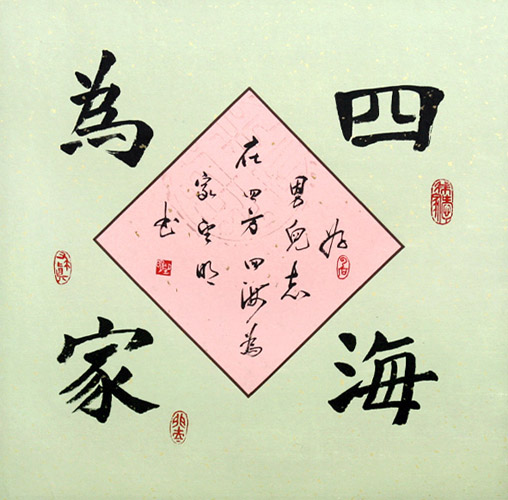 四海
為家
好
男兒志
在四方四海為
家
书